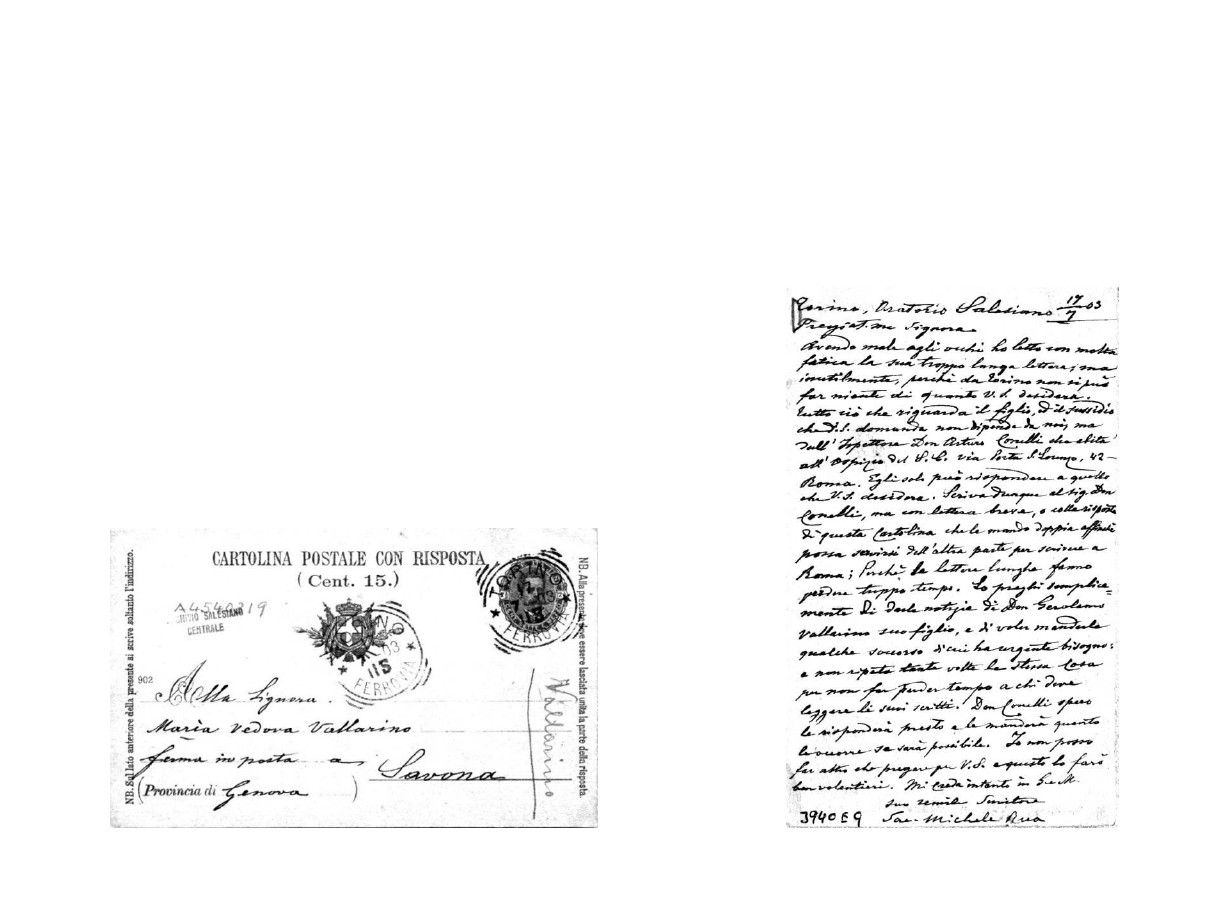 CARTOLINA POSTALE CON RISPOSTA
(Cent. 15.)
A4540319
ARCHIVIO SALESIANO
CENTRALE
TORINO
FERROVIA
TORINO
03
11S
FERROVIA
902
Alla Signora
Maria Vedova Vallarino
ferma in posta a Savona
(Provincia di Genova)
Vallarino
NB. Sul lato anteriore della presente si scrive soltanto l'indirizzo.
NB. Alla presente deve essere lasciata unita la parte della risposta.
Torino, Oratorio Salesiano 17/7 03
Pregiat.ma Signora
Avendo male agli occhi ho letto con molta
fatica la sua troppo lunga lettera; ma
inutilmente, perchè da Torino non si può
far niente di quanto V.S. desidera.
Tutto ciò che riguarda il figlio, ed il sussidio
che V.S. domanda non dipende da noi, ma
dall'Ispettore Don Arturo Conelli che abita
all'Ospizio del S.C. via Porta S. Lorenzo, 42 -
Roma. Egli solo può rispondere a quello
che V.S. desidera. Scriva dunque al sig. Don
Conelli, ma con lettera breve, o colla risposta
di questa Cartolina che le mando doppia affinchè
possa servirsi dell'altra parte per scrivere a
Roma; Perchè le lettere lunghe fanno
perdere troppo tempo. Lo preghi semplice=
mente di darle notizie di Don Gerolamo
Vallarino suo figlio, e di voler mandarle
qualche soccorso di cui ha urgente bisogno:
e non ripeta tante volte la stessa cosa
per non far perder tempo a chi deve
leggere li suoi scritti. Don Conelli spero
le risponderà presto e le manderà quanto
le occorre se sarà possibile. Io non posso
far altro che pregare per V.S. e questo lo farò
ben volentieri. Mi creda intanto in G. e M.
suo umile Servitore
Sac. Michele Rua
3940 E 9